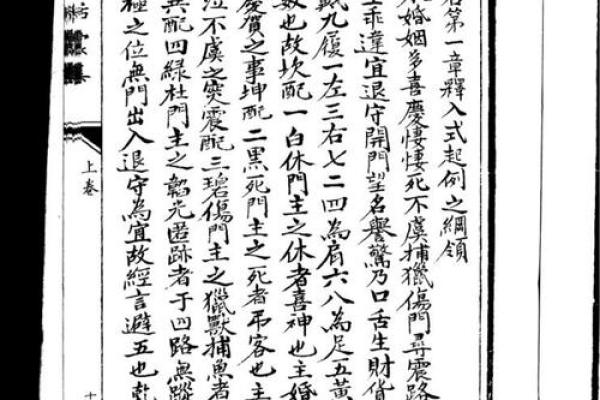 第一章釋入式起例之綱領
婚姻多喜慶悽悽死不虞捕獵傷門尋震路
乖違宜退守開門望名譽驚乃口舌生財貨
戴九履一左三右七二四為肩六八為足五黃
數也故坎配一白休門主之休者喜神也主婚
慶賀之事坤配二黑死門主之死者吊客也主
泣不虞之突震配三碧傷門主之獵獸捕魚者
配四綠杜門主之韜光匿跡者于四路無蹤
極之位無門出入退守為宜故經言避五也乾
上卷
十